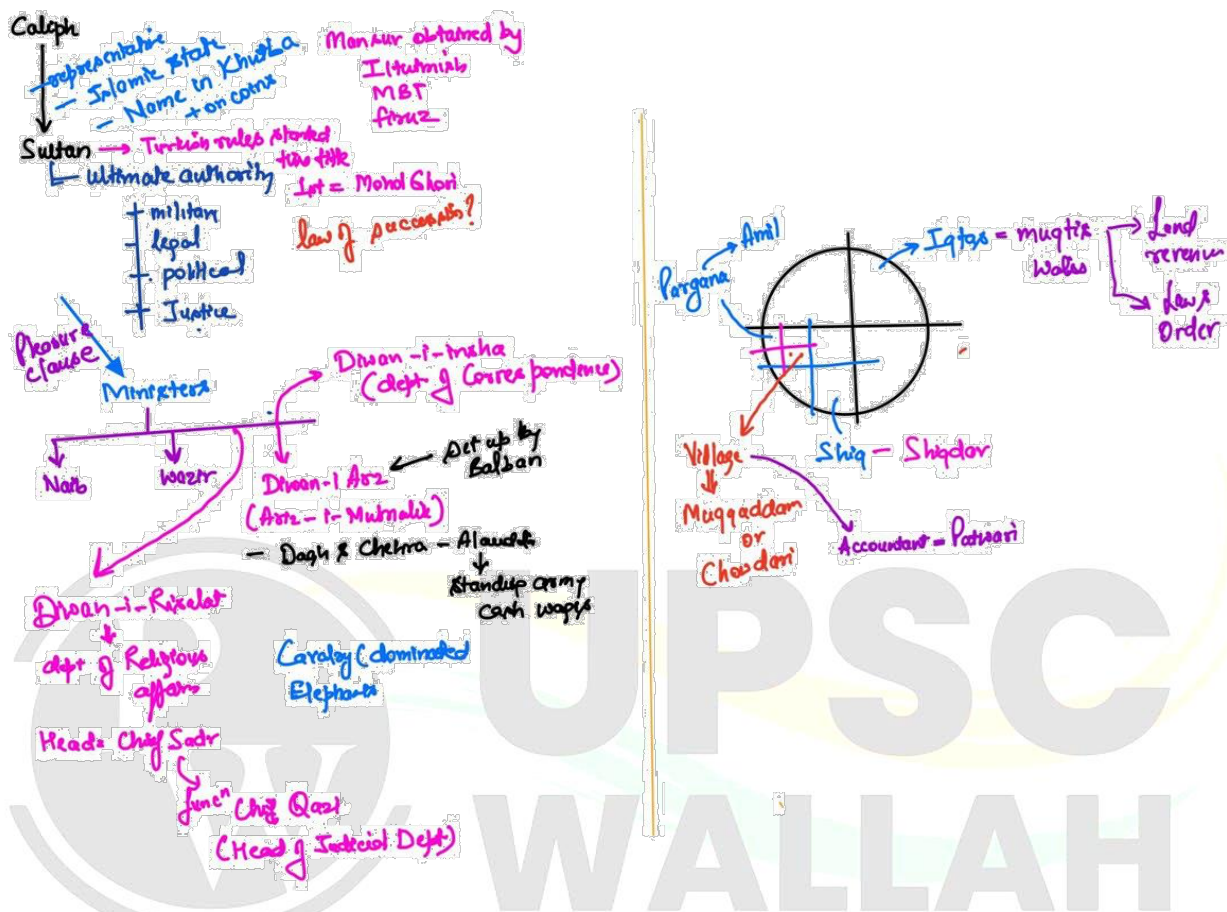 Caliph
- representative
- Islamic state
- Name in Khutba
+ on coins
Mansur obtained by
Iltutmish
MBT
firuz
Sultan → Turkish rules started
this title
Ist = Mohd Ghori
Ultimate authority
military
legal
political
Justice
law of succession?
Pleasure
clause
Ministers
Naib
Wazir
Diwan-i-insha
(dept of Correspondence)
Diwan-i Arz
(Ariz-i-Mumalik)
Set up by
Balban
- Dagh & Chehra - Alauddin
Standup army
cash wages
Diwan-i-Risalat
dept of Religious
affairs
Head = Chief Sadr
funcⁿ Chief Qazi
(Head of Judicial Dept)
Cavalry (dominated
Elephants
Pargana
Amil
Iqtas = muqtis
walis
Land
revenue
Law &
Order
Village
Muqqaddam
or
Chowdari
Shiq - Shiqdar
Accountant = Patwari
UPSC
WALLAH